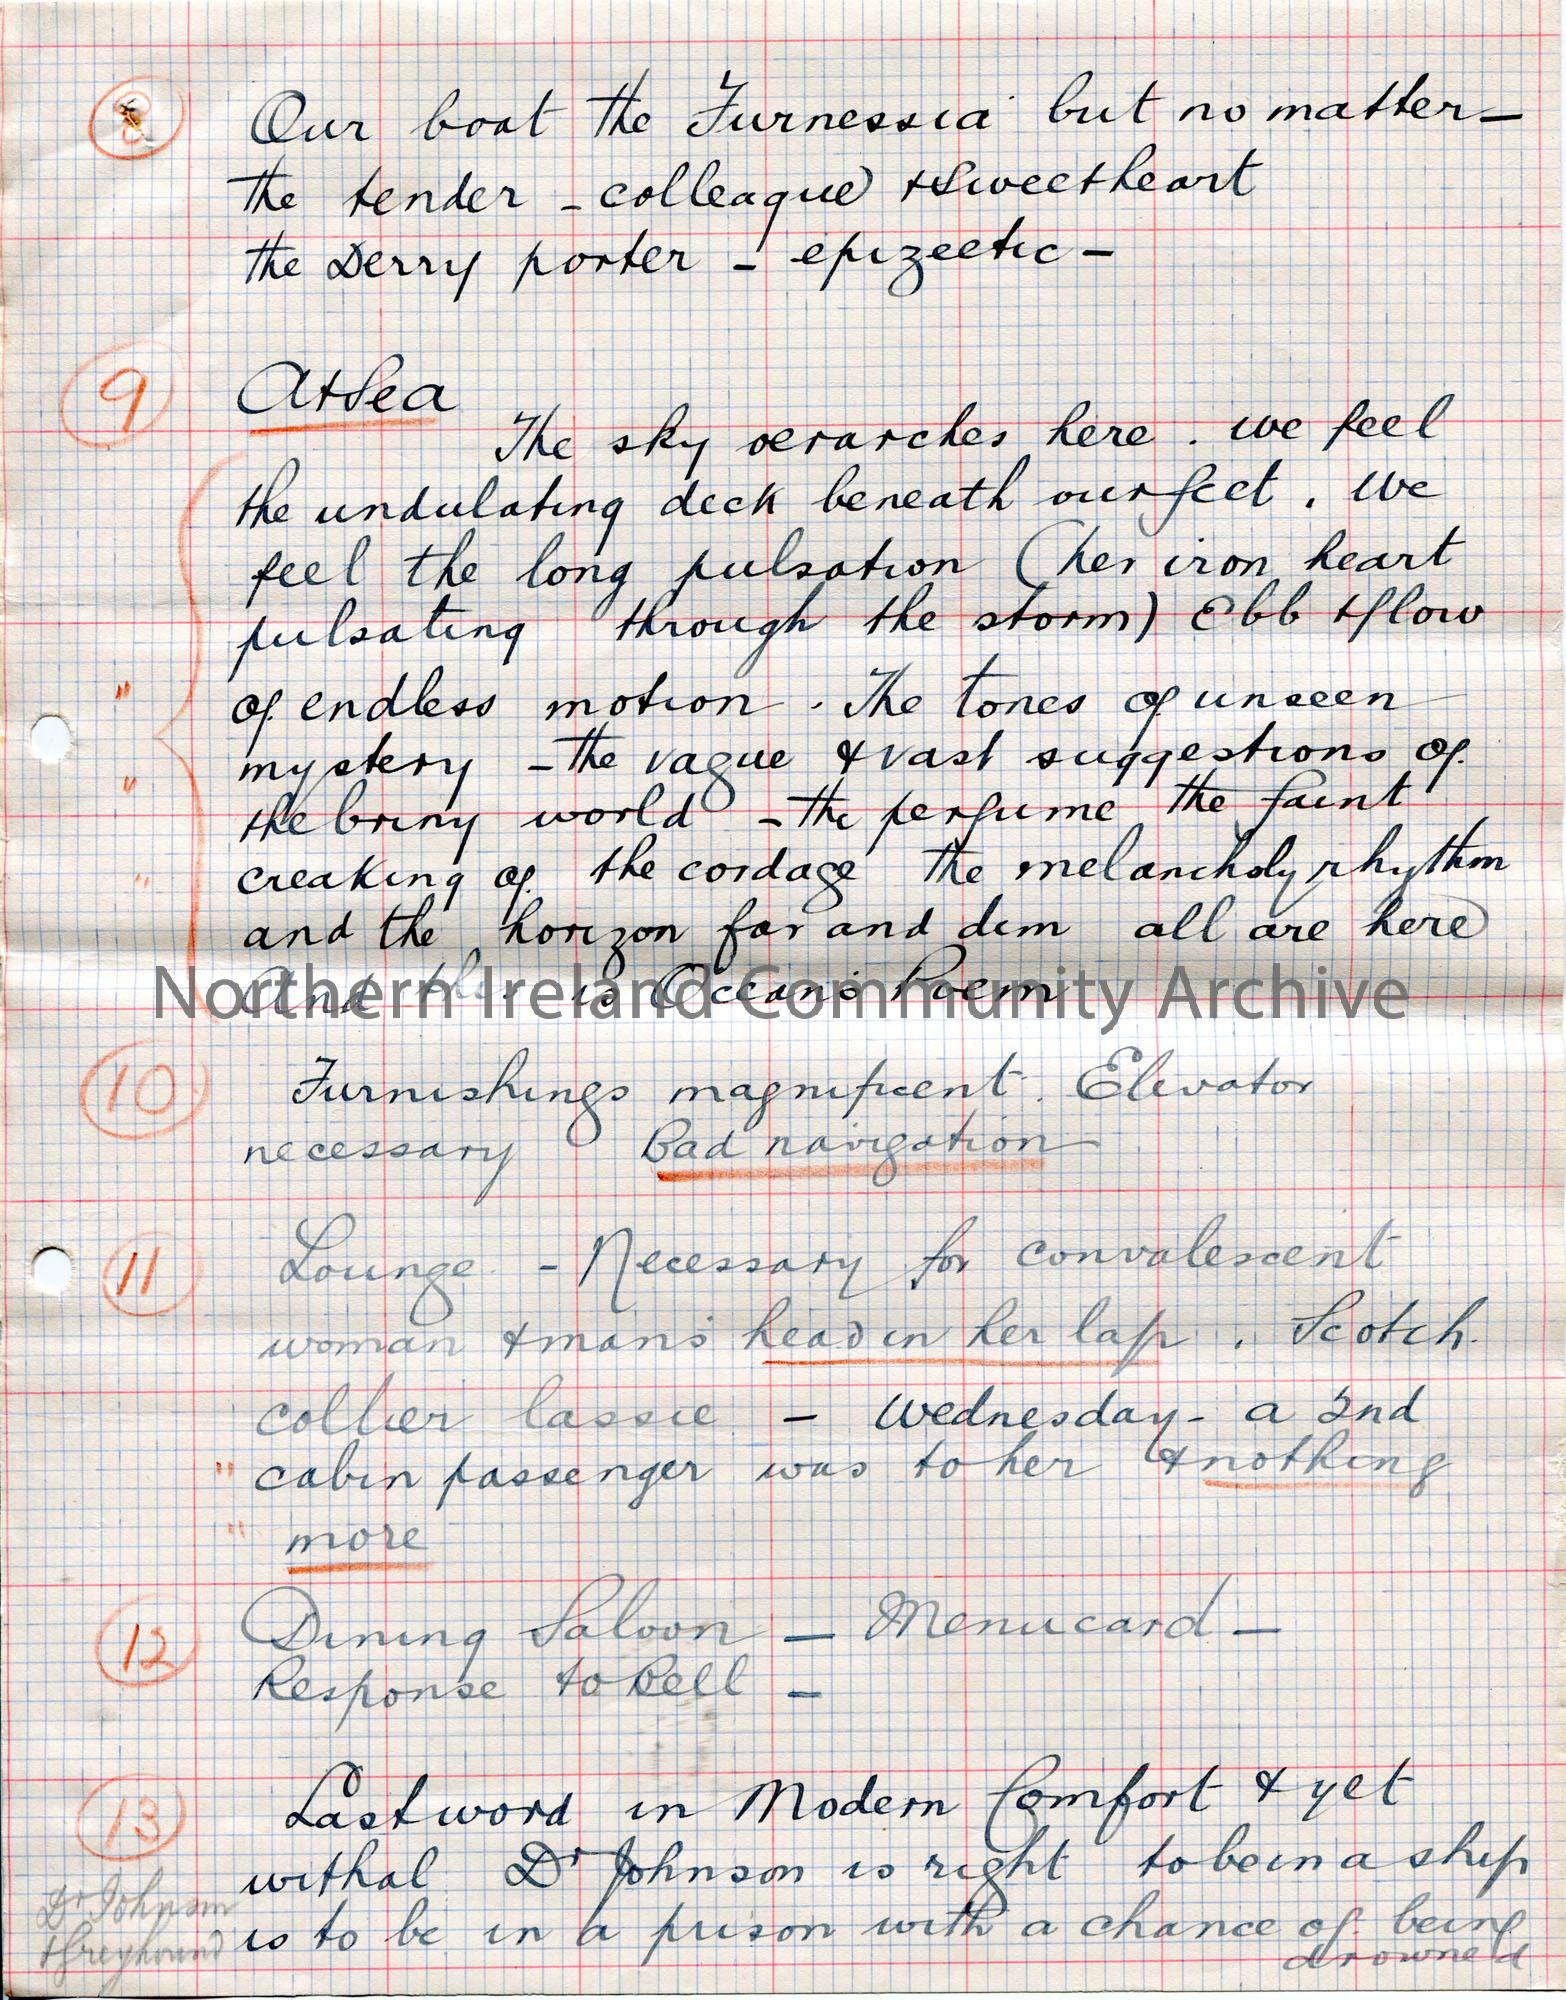 8 Our boat the Furnessia but no matter –
the tender – colleague & Sweetheart
the Derry porter – epizeetic –
9 At Sea
The sky oerarches here . we feel
the undulating deck beneath our feet . We
feel the long pulsation (her iron heart
pulsating through the storm) Ebb & flow
" of endless motion . The tones of unseen
" mystery – the vague & vast suggestions of
the briny world – the perfume the faint
" creaking of the cordage the melancholy rhythm
and the horizon far and dim all are here
And this is Ocean's Poem
Northern Ireland Community Archive
10 Furnishings magnificent . Elevator
necessary Bad navigation
11 Lounge – Necessary for convalescent
woman & mans head in her lap . Scotch
collier lassie – Wednesday – a 2nd
" cabin passenger was to her & nothing
" more
12 Dining Saloon – Menucard –
Response to Bell –
13 Last word in Modern Comfort & yet
withal Dr Johnson is right to be in a ship
is to be in a prison with a chance of being
drowned
Dr Johnson
& Greyhound